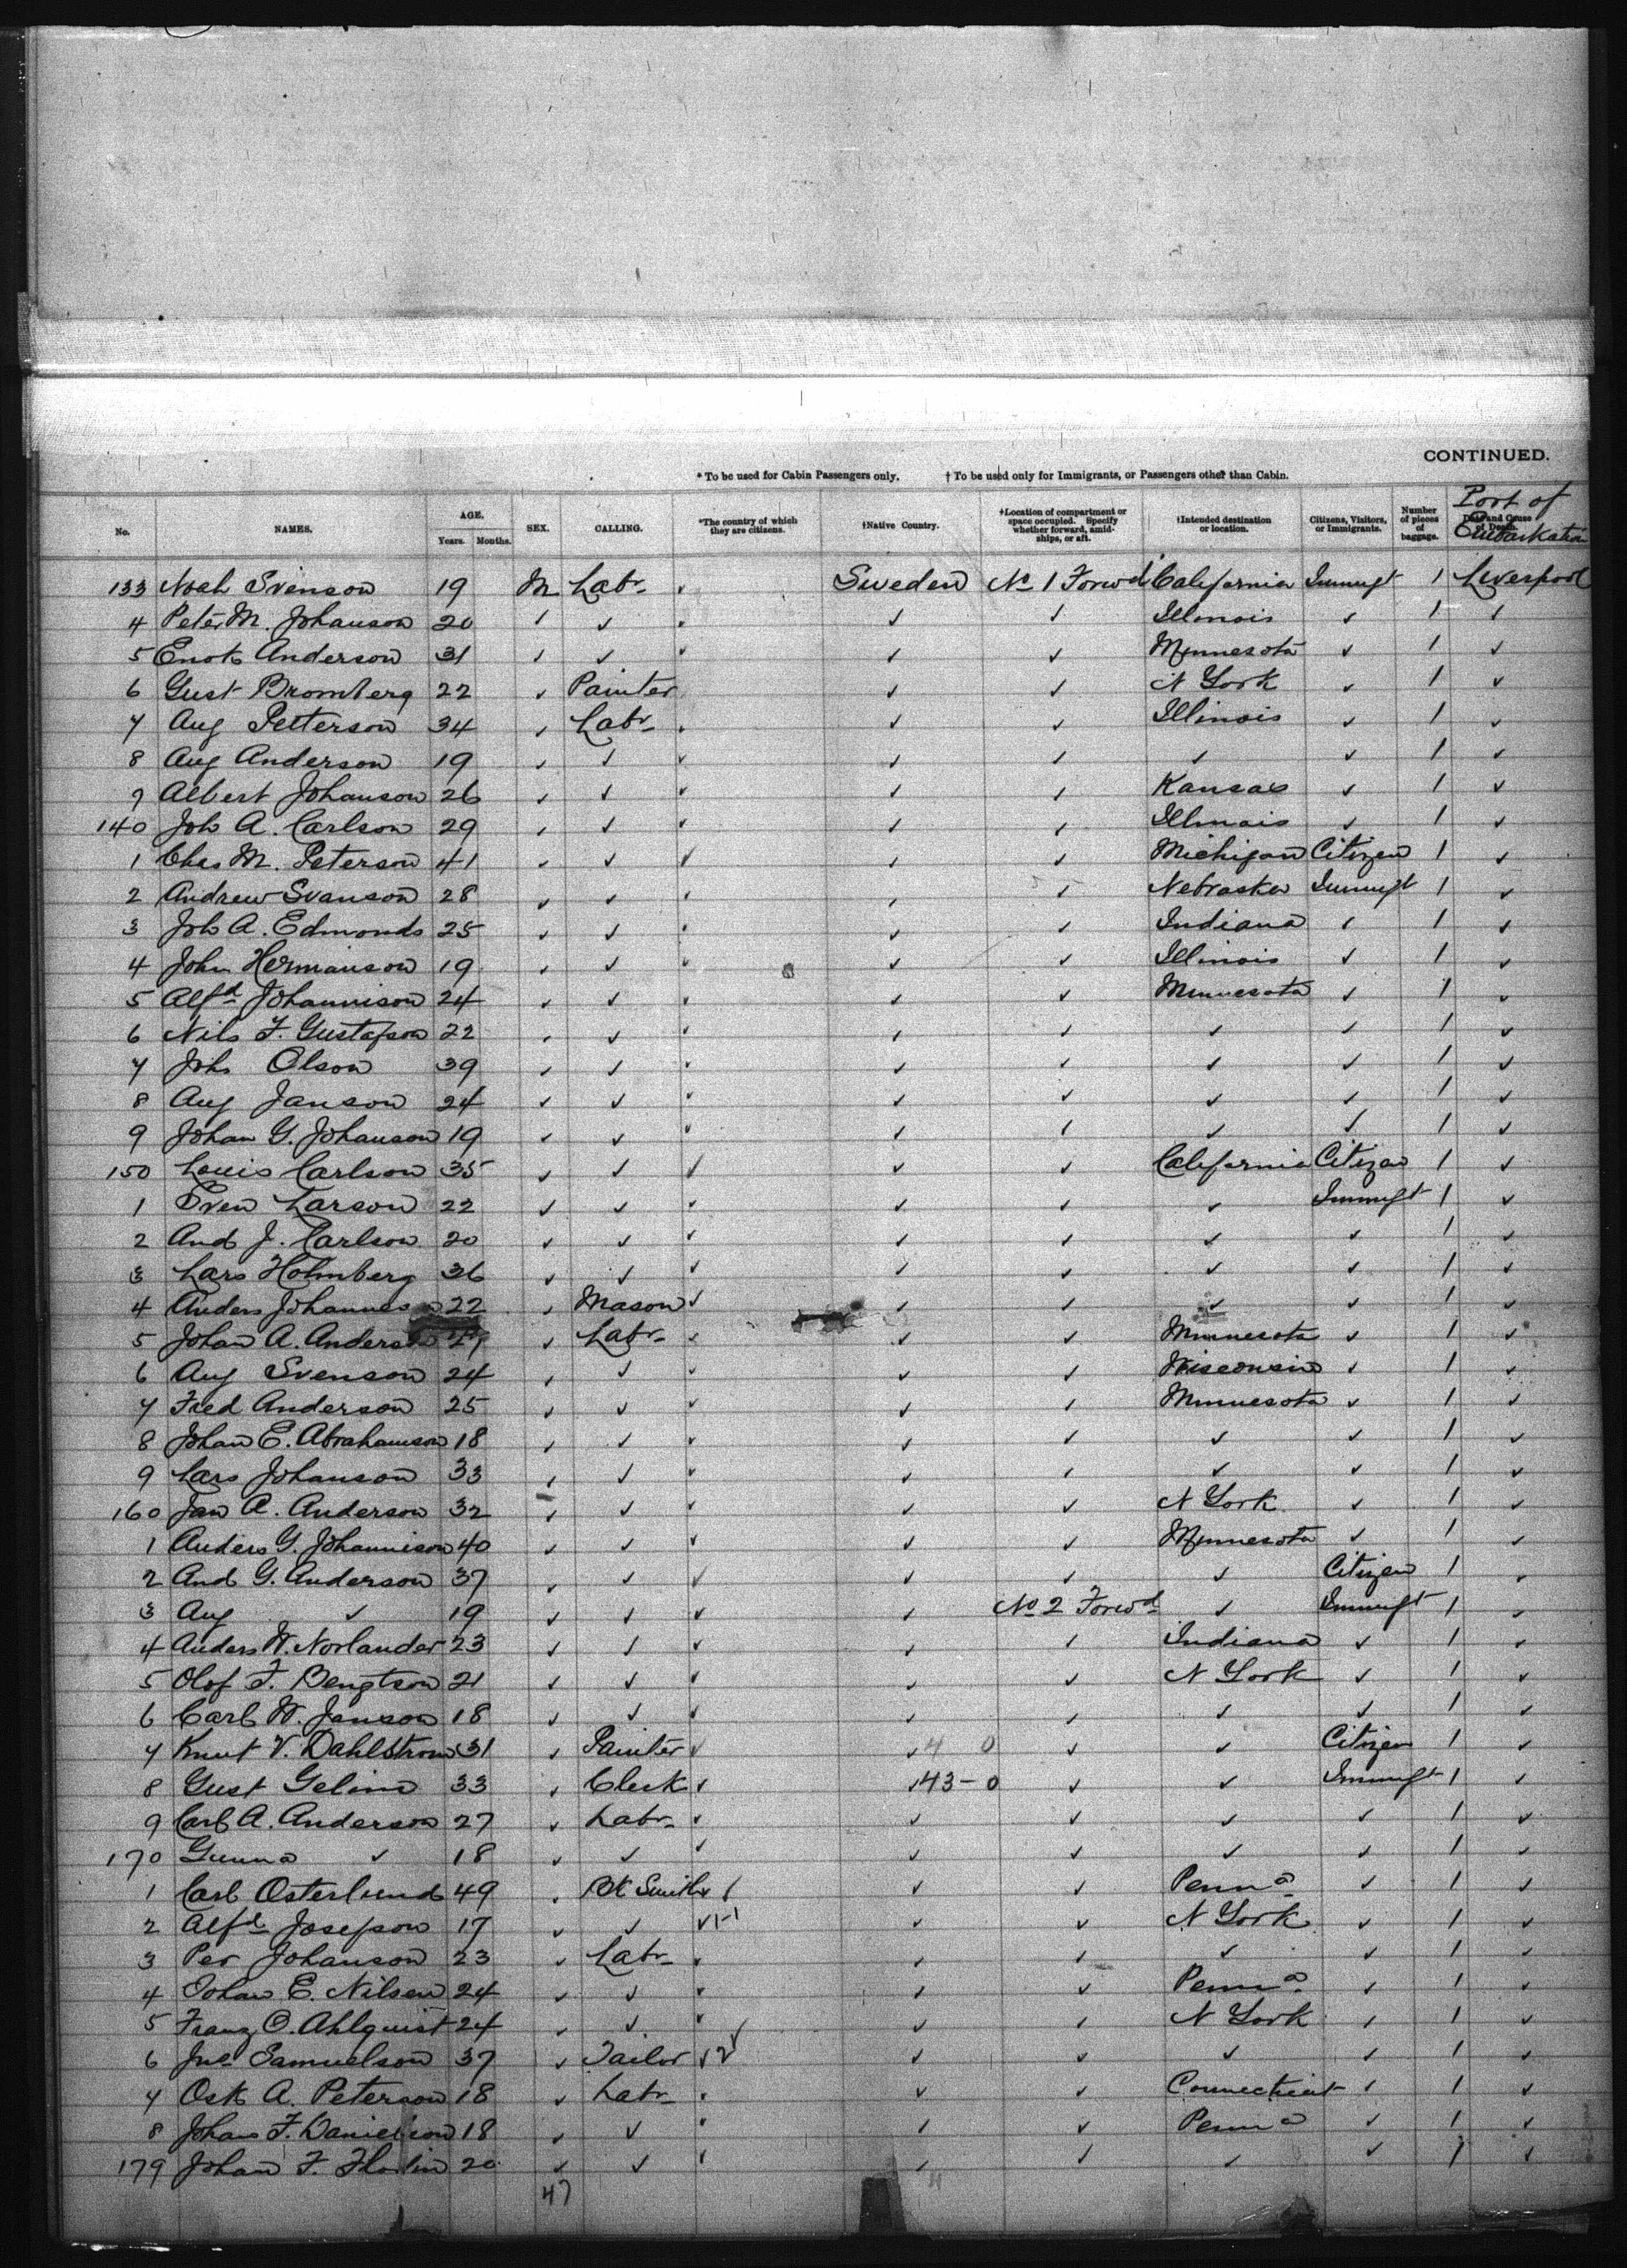 CONTINUED.
* To be used for Cabin Passengers only. † To be used only for Immigrants, or Passengers other than Cabin.
No. NAMES. AGE. Years. Months. SEX. CALLING. *The country of which they are citizens. †Native Country. †Location of compartment or space occupied. Specify whether forward, amidships, or aft. †Intended destination or location. Citizens, Visitors, or Immigrants. Number of pieces of baggage. Date and Cause of Death. Port of Embarkation
133 Noah Svenson 19 M Labr ✓ Sweden No 1 Forwd California Immigt 1 Liverpool
4 Peter M. Johanson 20 ✓ ✓ ✓ ✓ ✓ Illinois ✓ 1 ✓
5 Enok Anderson 31 ✓ ✓ ✓ ✓ ✓ Minnesota ✓ 1 ✓
6 Gust Bromberg 22 ✓ Painter ✓ ✓ N York ✓ 1 ✓
7 Aug Petterson 34 ✓ Labr ✓ ✓ ✓ Illinois ✓ 1 ✓
8 Aug Anderson 19 ✓ ✓ ✓ ✓ ✓ ✓ ✓ 1 ✓
9 Albert Johanson 26 ✓ ✓ ✓ ✓ ✓ Kansas ✓ 1 ✓
140 Joh A. Carlson 29 ✓ ✓ ✓ ✓ ✓ Illinois ✓ 1 ✓
1 Chas M. Peterson 41 ✓ ✓ ✓ ✓ ✓ Michigan Citizen 1 ✓
2 Andrew Svanson 28 ✓ ✓ ✓ ✓ ✓ Nebraska Immigt 1 ✓
3 Joh A. Edmonds 25 ✓ ✓ ✓ ✓ ✓ Indiana ✓ 1 ✓
4 John Hermanson 19 ✓ ✓ ✓ ✓ ✓ Illinois ✓ 1 ✓
5 Alfd Johannison 24 ✓ ✓ ✓ ✓ ✓ Minnesota ✓ 1 ✓
6 Nils F. Gustafson 22 ✓ ✓ ✓ ✓ ✓ ✓ ✓ 1 ✓
7 Johs Olson 39 ✓ ✓ ✓ ✓ ✓ ✓ ✓ 1 ✓
8 Aug Janson 24 ✓ ✓ ✓ ✓ ✓ ✓ ✓ 1 ✓
9 Johan G. Johanson 19 ✓ ✓ ✓ ✓ ✓ ✓ ✓ 1 ✓
150 Louis Carlson 35 ✓ ✓ ✓ ✓ ✓ California Citizen 1 ✓
1 Sven Larson 22 ✓ ✓ ✓ ✓ ✓ ✓ Immigt 1 ✓
2 And J. Carlson 20 ✓ ✓ ✓ ✓ ✓ ✓ ✓ 1 ✓
3 Lars Holmberg 36 ✓ ✓ ✓ ✓ ✓ ✓ ✓ 1 ✓
4 Anders 22 ✓ Mason ✓ ✓ ✓ ✓ ✓ 1 ✓
5 Johan A. Anderson ✓ Labr ✓ ✓ ✓ Minnesota ✓ 1 ✓
6 Aug Svenson 24 ✓ ✓ ✓ ✓ ✓ Wisconsin ✓ 1 ✓
7 Fred Anderson 25 ✓ ✓ ✓ ✓ ✓ Minnesota ✓ 1 ✓
8 Johan E. Abrahamson 18 ✓ ✓ ✓ ✓ ✓ ✓ ✓ 1 ✓
9 Lars Johanson 33 ✓ ✓ ✓ ✓ ✓ ✓ ✓ 1 ✓
160 Jan A. Anderson 32 ✓ ✓ ✓ ✓ ✓ N York ✓ 1 ✓
1 Anders G. Johannison 40 ✓ ✓ ✓ ✓ ✓ Minnesota ✓ 1 ✓
2 And G. Anderson 37 ✓ ✓ ✓ ✓ ✓ ✓ Citizen 1 ✓
3 Aug ✓ 19 ✓ ✓ ✓ ✓ No 2 Forwd ✓ Immigt 1 ✓
4 Anders W. Norlander 23 ✓ ✓ ✓ ✓ ✓ Indiana ✓ 1 ✓
5 Olof F. Bengtson 21 ✓ ✓ ✓ ✓ ✓ N York ✓ 1 ✓
6 Carl W. Janson 18 ✓ ✓ ✓ ✓ ✓ ✓ ✓ 1 ✓
7 Knut V. Dahlstrom 31 ✓ Painter ✓ ✓ 4 0 ✓ ✓ Citizen 1 ✓
8 Gust Gelin 33 ✓ Clerk ✓ ✓ 43-0 ✓ ✓ Immigt 1 ✓
9 Carl A. Anderson 27 ✓ Labr ✓ ✓ ✓ ✓ ✓ 1 ✓
170 Gunna ✓ 18 ✓ ✓ ✓ ✓ ✓ ✓ ✓ 1 ✓
1 Carl Osterlund 49 ✓ Bk Smith ✓ 1 ✓ ✓ Penna ✓ 1 ✓
2 Alfd Josefson 17 ✓ ✓ ✓ 1-1 ✓ ✓ N York ✓ 1 ✓
3 Per Johanson 23 ✓ Labr ✓ ✓ ✓ ✓ ✓ 1 ✓
4 Johan E. Nilsen 24 ✓ ✓ ✓ ✓ ✓ Penna ✓ 1 ✓
5 Franz O. Ahlquist 24 ✓ ✓ ✓ ✓ ✓ N York ✓ 1 ✓
6 Jno Samuelson 37 ✓ Tailor ✓ 2 ✓ ✓ ✓ ✓ 1 ✓
7 Osk A. Peterson 18 ✓ Labr ✓ ✓ ✓ Connecticut ✓ 1 ✓
8 Johan F. Danielson 18 ✓ ✓ ✓ ✓ ✓ Penna ✓ 1 ✓
179 Johan F. 20 ✓ ✓ ✓ ✓ ✓ ✓ ✓ 1 ✓
47